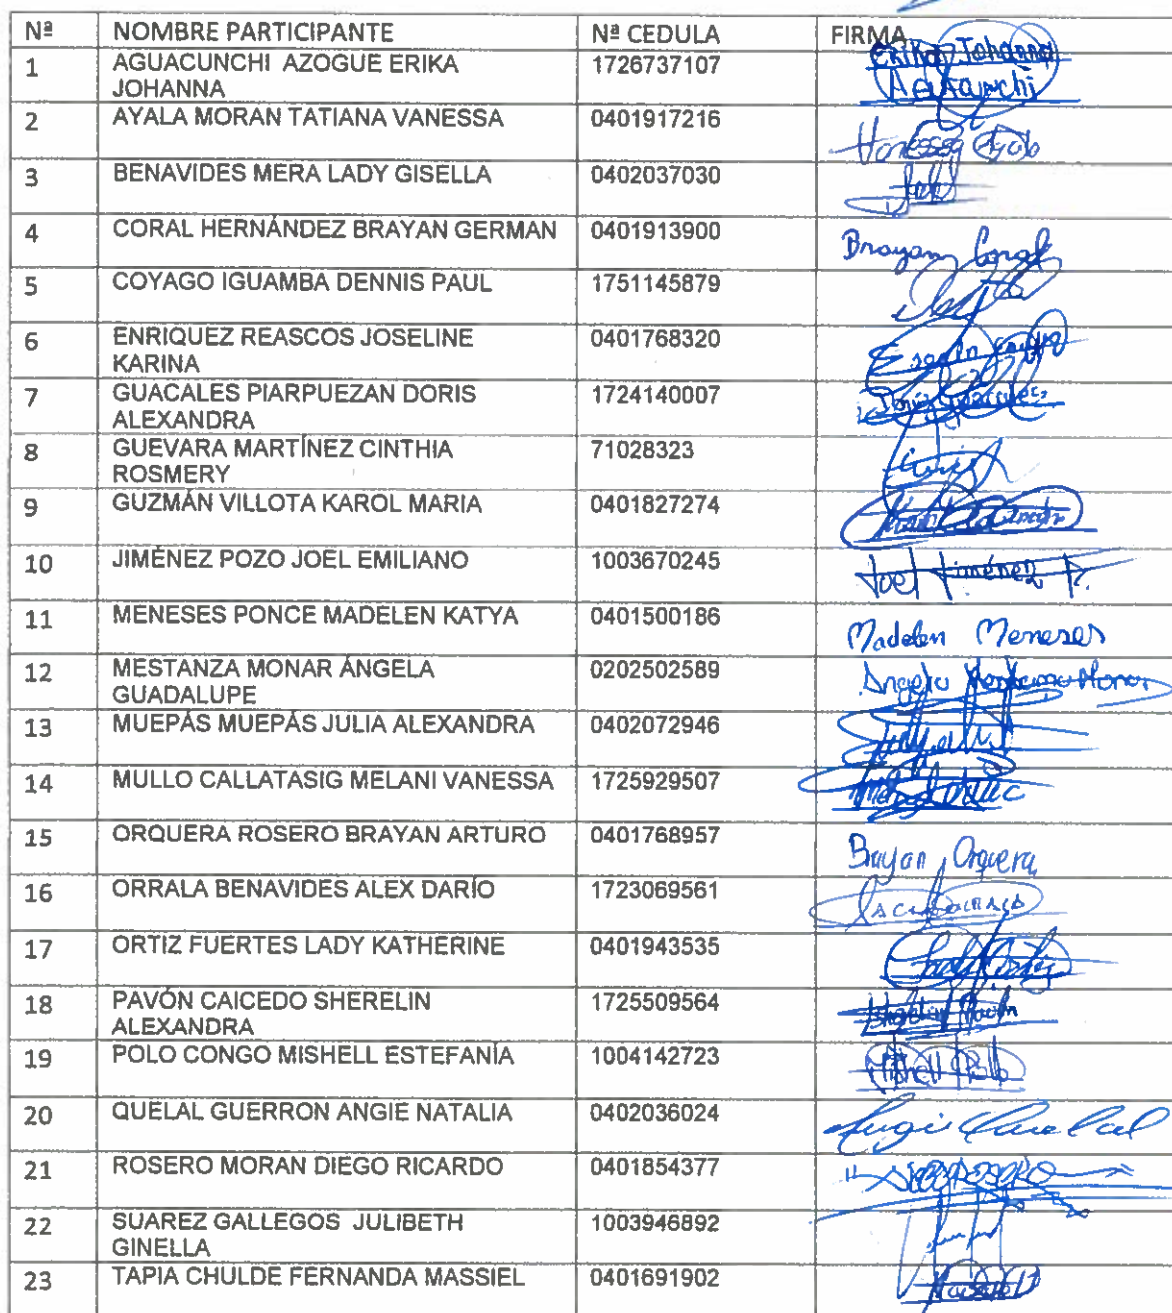 Nª NOMBRE PARTICIPANTE Nª CEDULA FIRMA
1 AGUACUNCHI AZOGUE ERIKA 1726737107 Erika Johanna
JOHANNA Aguacunchi
2 AYALA MORAN TATIANA VANESSA 0401917216 Vanessa Ayala
3 BENAVIDES MERA LADY GISELLA 0402037030
4 CORAL HERNÁNDEZ BRAYAN GERMAN 0401913900 Brayan Coral
5 COYAGO IGUAMBA DENNIS PAUL 1751145879
6 ENRIQUEZ REASCOS JOSELINE 0401768320
KARINA
7 GUACALES PIARPUEZAN DORIS 1724140007 Doris Guacales
ALEXANDRA
8 GUEVARA MARTÍNEZ CINTHIA 71028323
ROSMERY
9 GUZMÁN VILLOTA KAROL MARIA 0401827274
10 JIMÉNEZ POZO JOEL EMILIANO 1003670245 Joel Jiménez P.
11 MENESES PONCE MADELEN KATYA 0401500186 Madelen Meneses
12 MESTANZA MONAR ÁNGELA 0202502589 Angela Mestanza Monar
GUADALUPE
13 MUEPÁS MUEPÁS JULIA ALEXANDRA 0402072946
14 MULLO CALLATASIG MELANI VANESSA 1725929507
15 ORQUERA ROSERO BRAYAN ARTURO 0401768957 Brayan Orquera
16 ORRALA BENAVIDES ALEX DARÍO 1723069561
17 ORTIZ FUERTES LADY KATHERINE 0401943535 Lady Ortiz
18 PAVÓN CAICEDO SHERELIN 1725509564 Sherelin Pavón
ALEXANDRA
19 POLO CONGO MISHELL ESTEFANÍA 1004142723 Mishell Polo
20 QUELAL GUERRON ANGIE NATALIA 0402036024 Angie Quelal
21 ROSERO MORAN DIEGO RICARDO 0401854377
22 SUAREZ GALLEGOS JULIBETH 1003946892
GINELLA
23 TAPIA CHULDE FERNANDA MASSIEL 0401691902